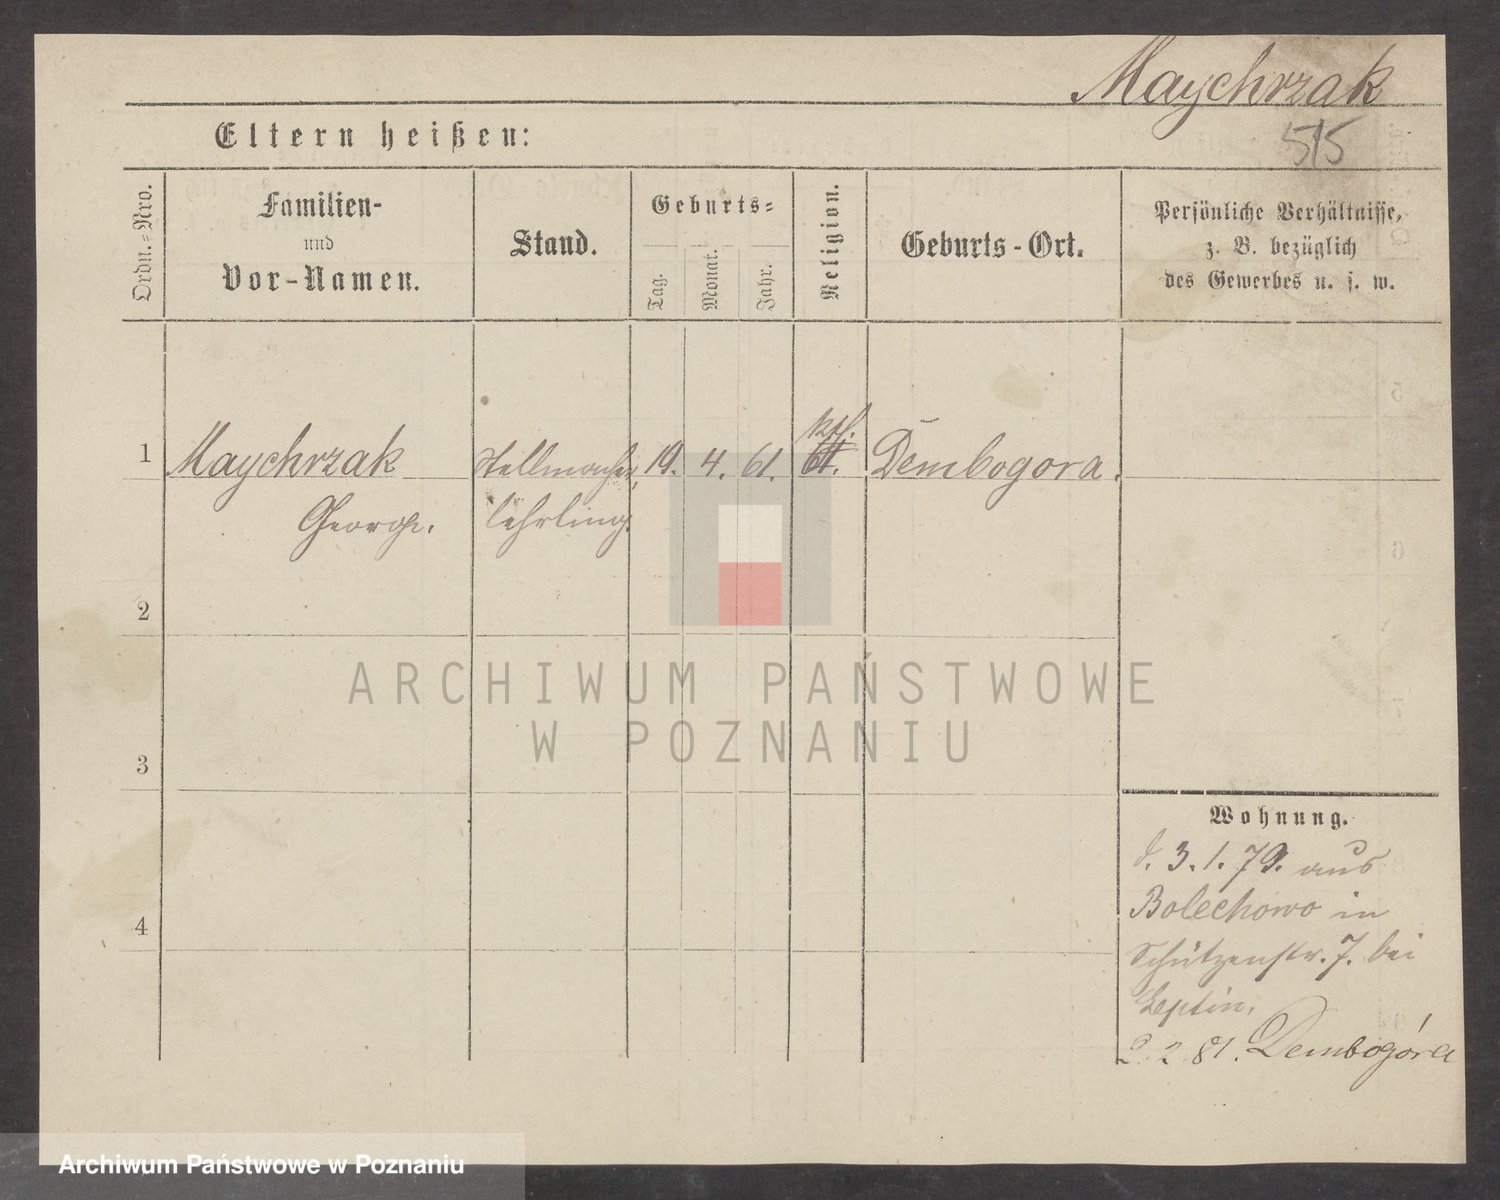 Maychrzak
515
Eltern heißen:
Ordn.-Nro.
Familien-
und
Vor-Namen.
Stand.
Geburts-
Tag.
Monat.
Jahr.
Religion.
Geburts-Ort.
Persönliche Verhältnisse,
z. B. bezüglich
des Gewerbes u. s. w.
1
Maychrzak
George.
Stellmacher
lehrling.
19.
4.
61.
kth.
Dembogora.
2
3
4
Wohnung.
d. 3.1.79. aus
Bolechowo in
Schützenstr. 7. bei
Leptin.
2.2.81. Dembogóra
ARCHIWUM PAŃSTWOWE
W POZNANIU
Archiwum Państwowe w Poznaniu